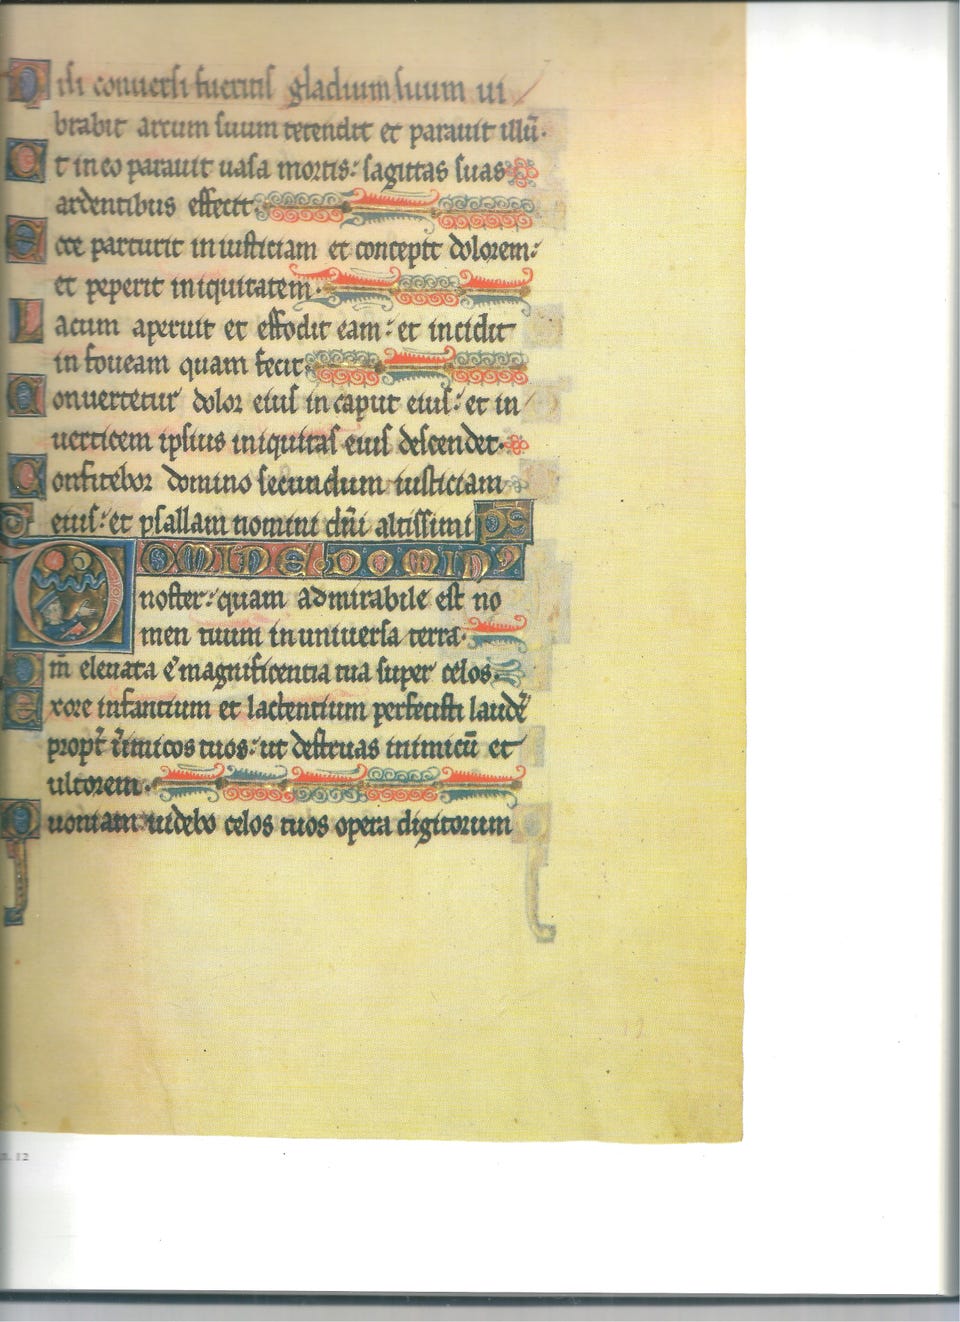 Nisi conuersi fueritis gladium suum ui
brabit arcum suum tetendit et parauit illū.
Et in eo parauit uasa mortis: sagittas suas
ardentibus effecit.
Ecce parturit iniusticiam et concepit dolorem:
et peperit iniquitatem.
Lacum aperuit et effodit eam: et incidit
in foueam quam fecit.
Conuertetur dolor eius in caput eius: et in
uerticem ipsius iniquitas eius descendet.
Confitebor domino secundum iusticiam
eius: et psallam nomini dñi altissimi PS
DOMINE DOMINꝰ
noster: quam admirabile est no
men tuum in uniuersa terra.
Qm̄ eleuata ē magnificentia tua super celos.
Ex ore infantium et lactentium perfecisti laudē
propt̄ īimicos tuos: ut destruas inimicū et
ultorem.
Quoniam uidebo celos tuos opera digitorum
12